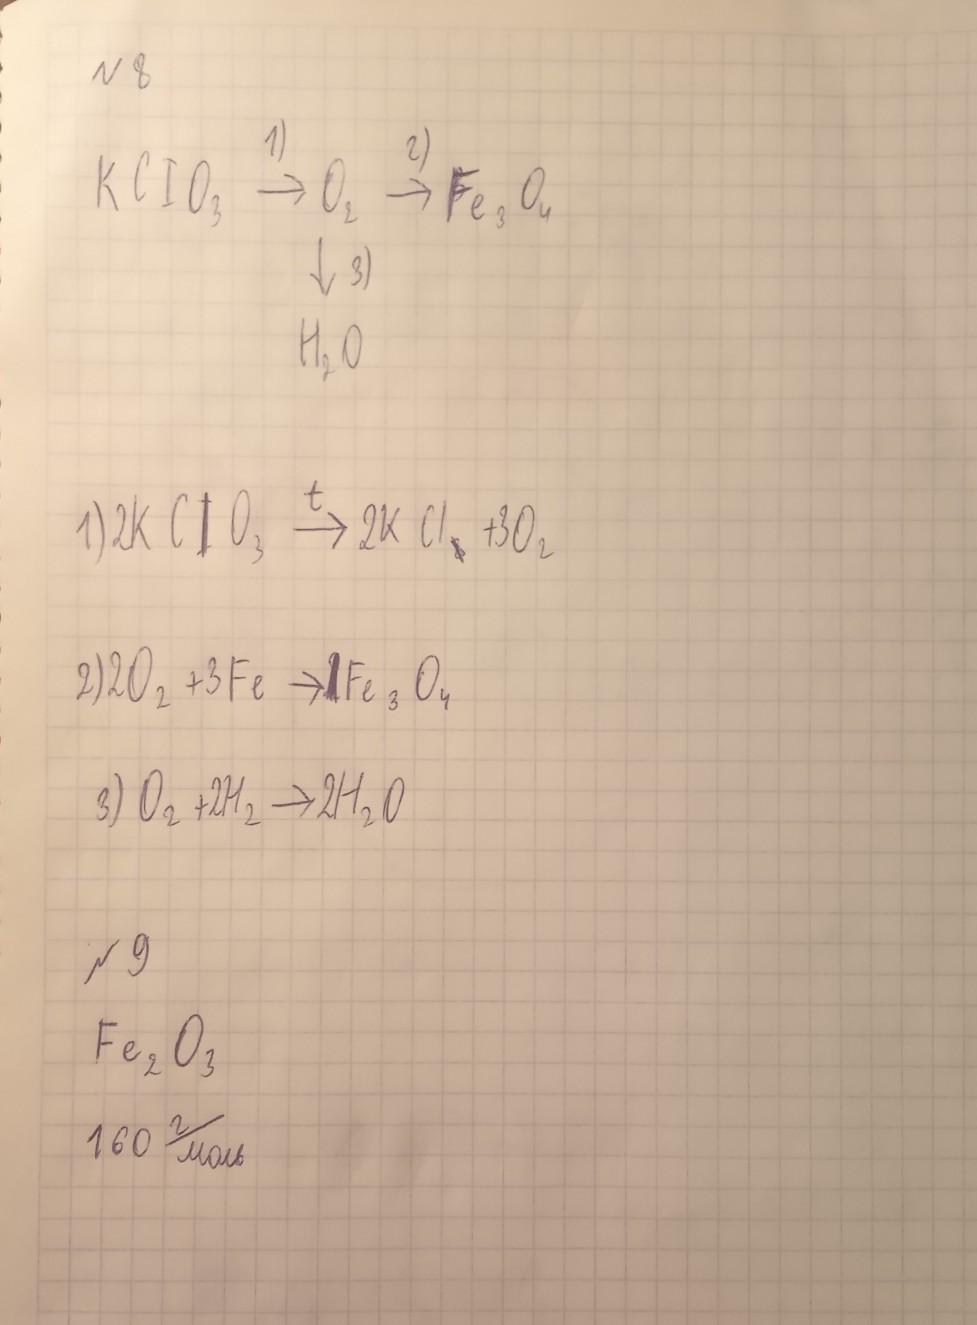 №8
KClO₃ →¹⁾ O₂ →²⁾ Fe₃O₄
↓ 3)
H₂O
1) 2KClO₃ →ᵗ 2KCl + 3O₂
2) 2O₂ + 3Fe → 1Fe₃O₄
3) O₂ + 2H₂ → 2H₂O
№9
Fe₂O₃
160 г/моль